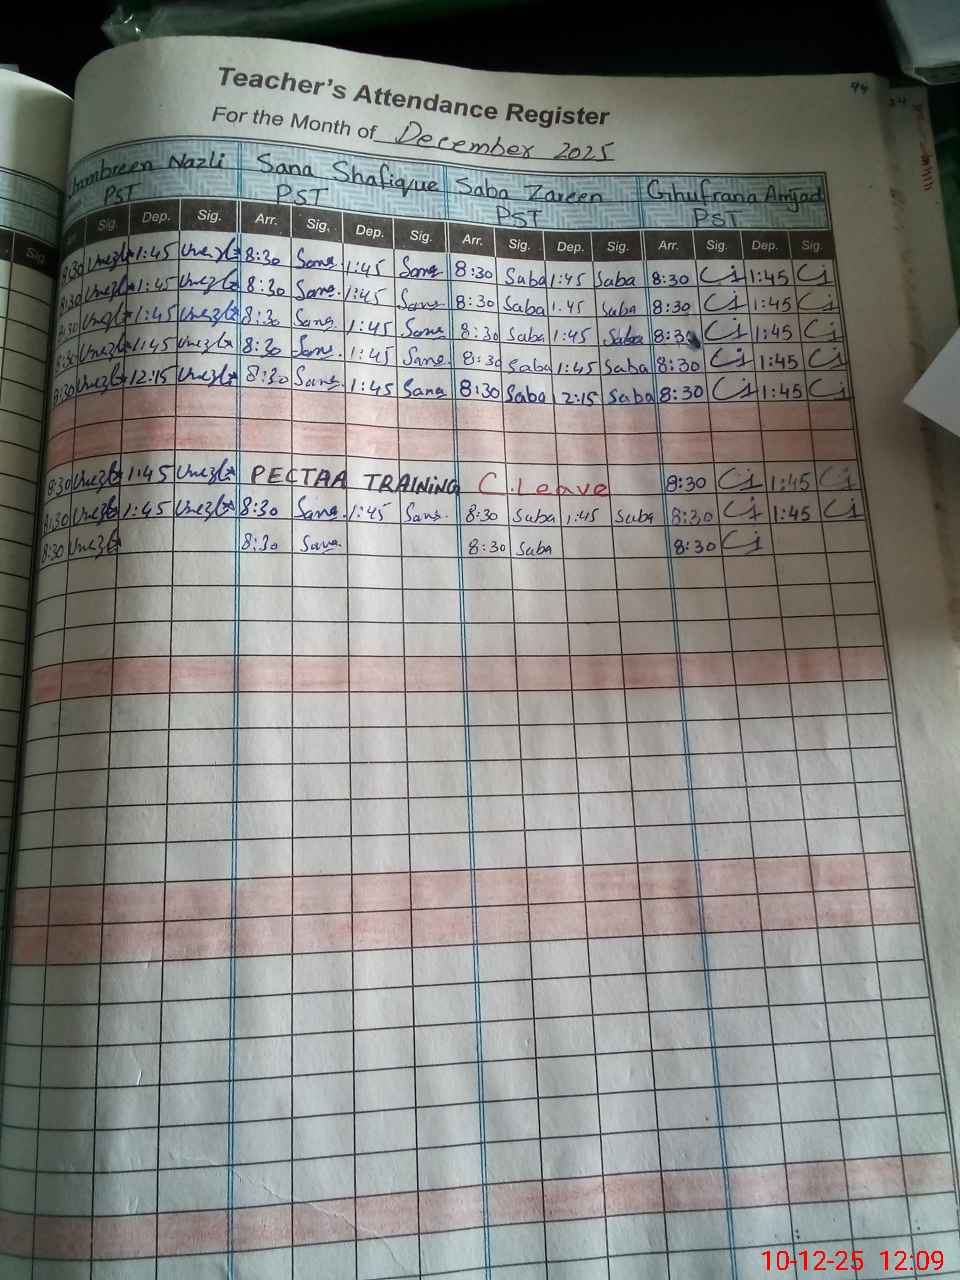 Teacher's Attendance Register
For the Month of December 2025
Nazli Sana Shafique Saba Zareen Ghufrana Amjad
PST PST PST PST
Sig. Dep. Sig. Arr. Sig. Dep. Sig. Arr. Sig. Dep. Sig. Arr. Sig. Dep. Sig.
8:30 1:45 8:30 Sana 1:45 Sana 8:30 Saba 1:45 Saba 8:30 1:45
8:30 1:45 8:30 Sana 1:45 Sana 8:30 Saba 1:45 Saba 8:30 1:45
8:30 1:45 8:30 Sana 1:45 Sana 8:30 Saba 1:45 Saba 8:30 1:45
8:30 1:45 8:30 Sana 1:45 Sana 8:30 Saba 1:45 Saba 8:30 1:45
8:30 12:15 8:30 Sana 1:45 Sana 8:30 Saba 2:15 Saba 8:30 1:45
8:30 1:45 PECTAA TRAINING C.Leave 8:30 1:45
8:30 1:45 8:30 Sana 1:45 Sana 8:30 Saba 1:45 Saba 8:30 1:45
8:30 8:30 Sana 8:30 Saba 8:30
10-12-25 12:09